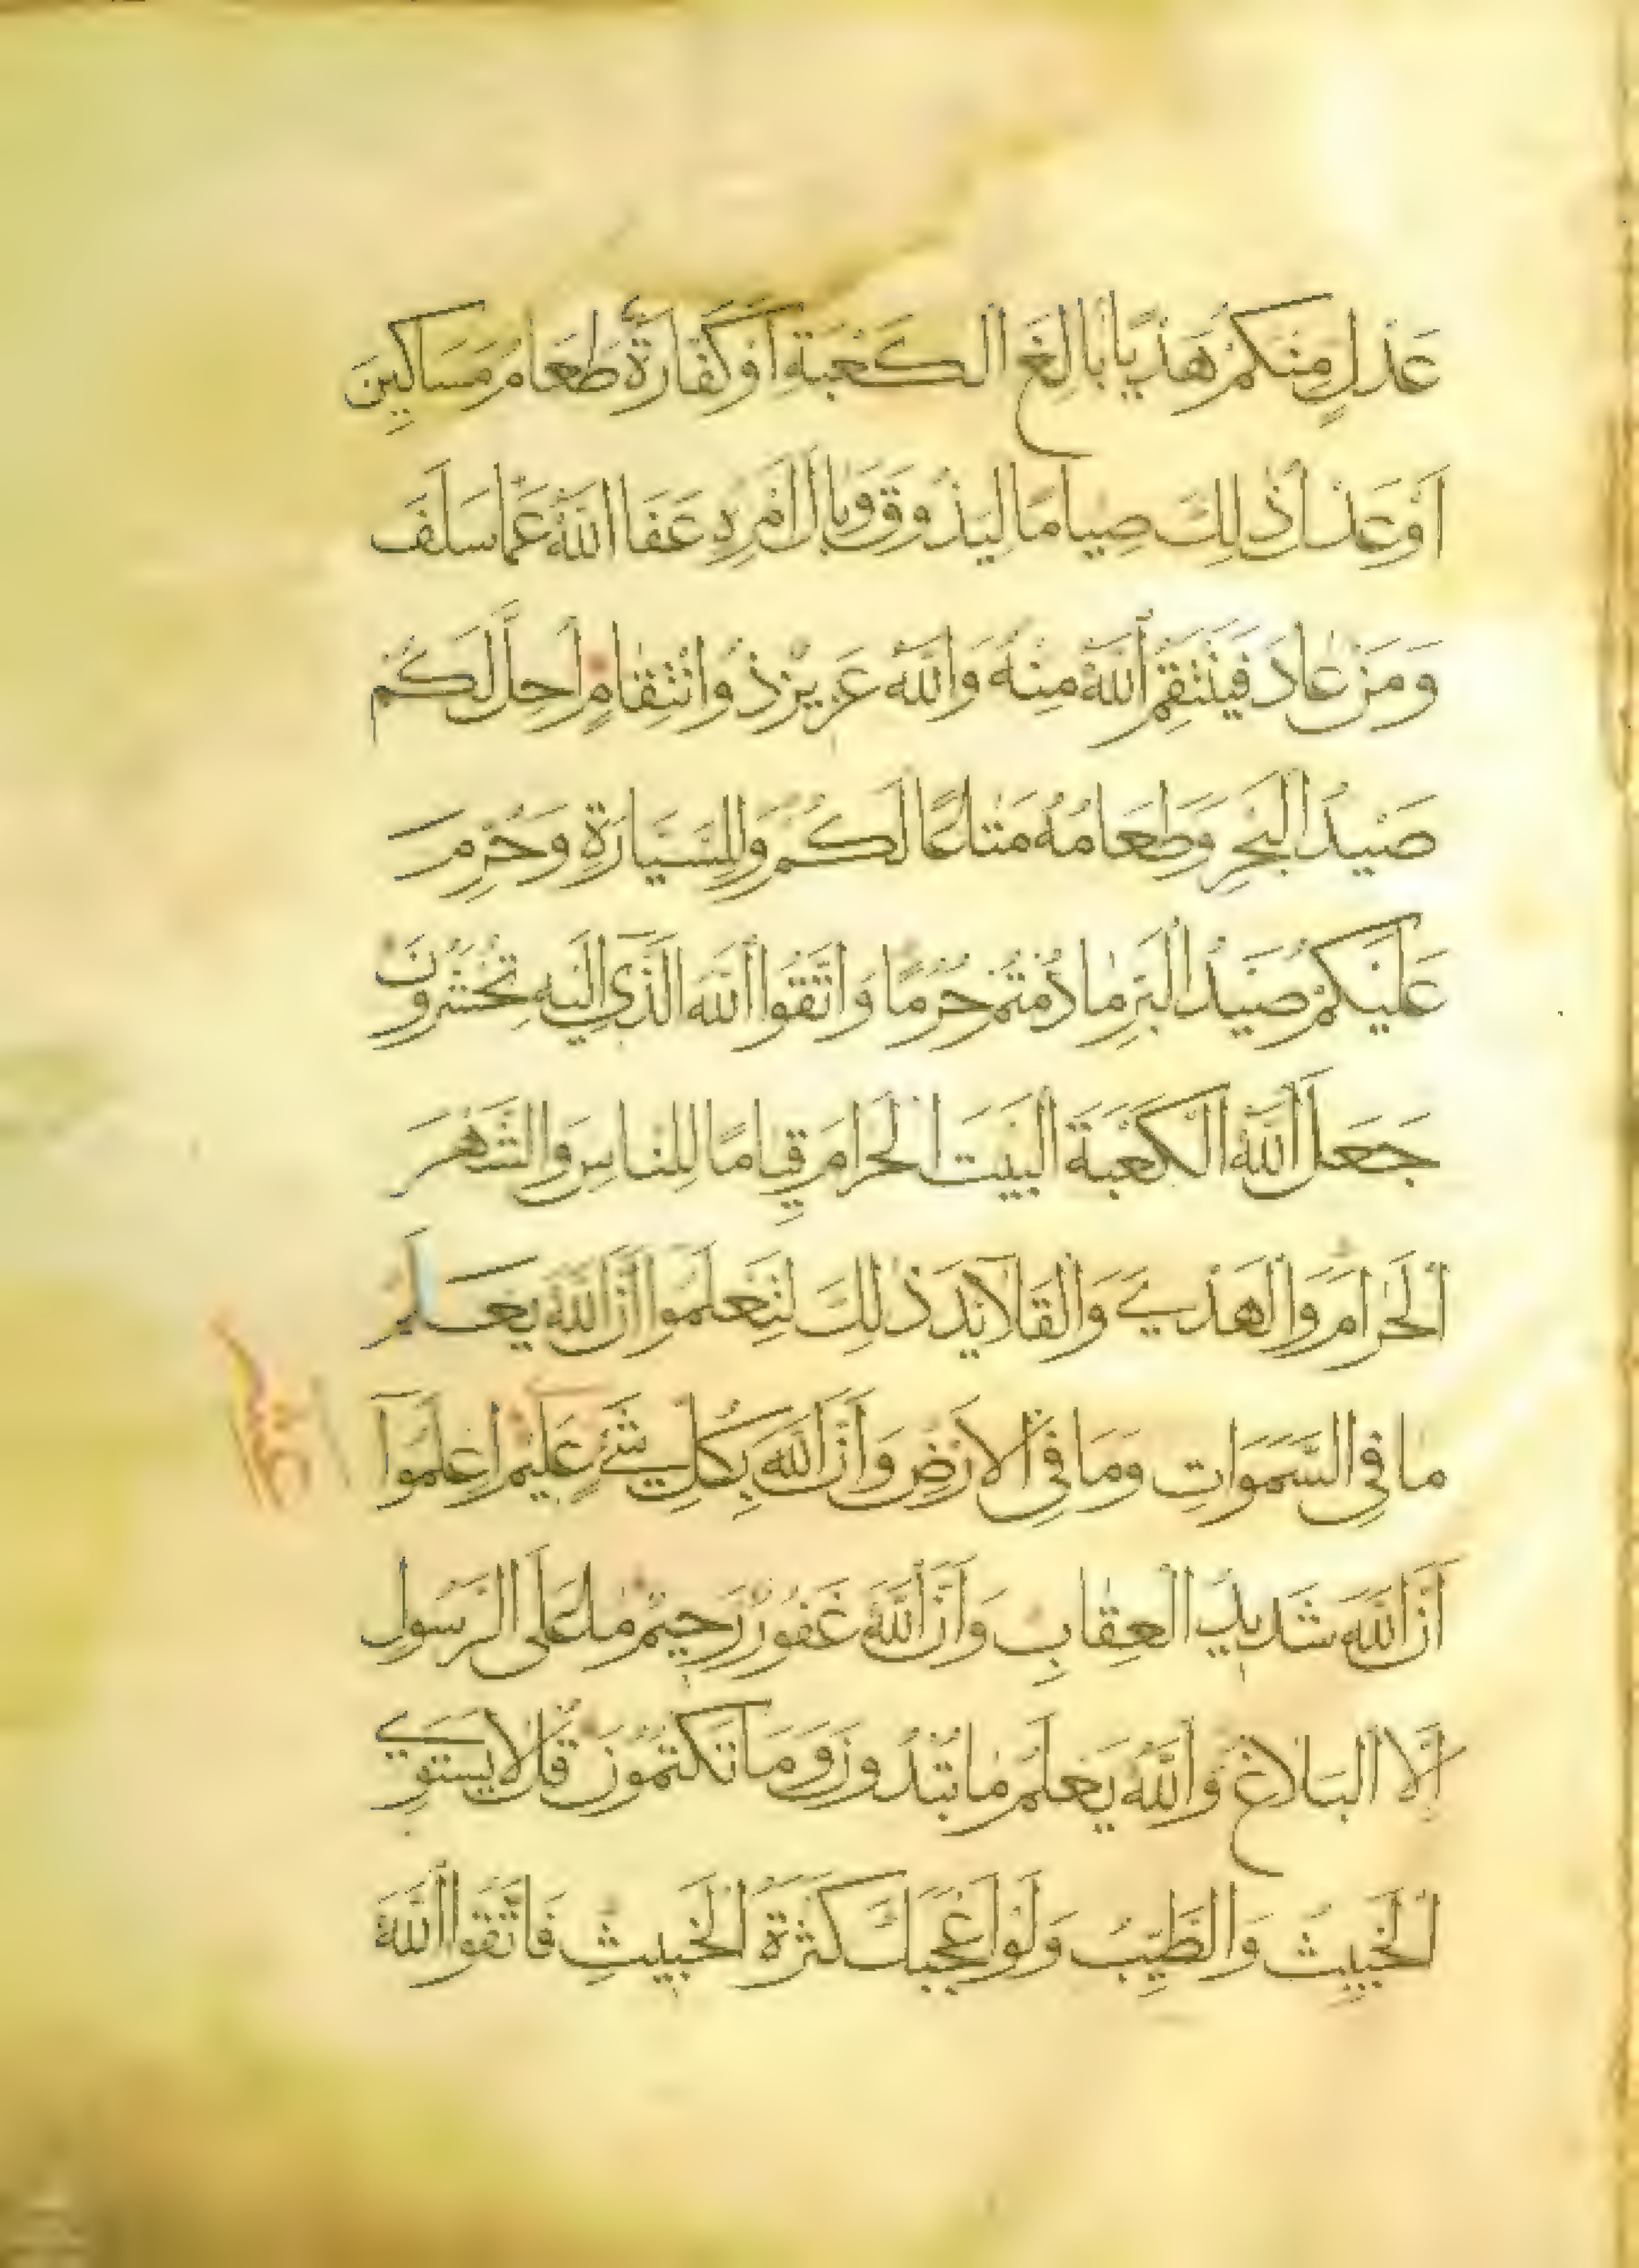 عَدْلٍ مِنْكُمْ هَدْيًا بَالِغَ الْكَعْبَةِ اَوْ كَفَّارَةٌ طَعَامُ مَسَاكِينَ
اَوْ عَدْلُ ذٰلِكَ صِيَامًا لِيَذُوقَ وَبَالَ اَمْرِهِ عَفَا اللّٰهُ عَمَّا سَلَفَ
وَمَنْ عَادَ فَيَنْتَقِمُ اللّٰهُ مِنْهُ وَاللّٰهُ عَزِيزٌ ذُو انْتِقَامٍ اُحِلَّ لَكُمْ
صَيْدُ الْبَحْرِ وَطَعَامُهُ مَتَاعًا لَكُمْ وَلِلسَّيَّارَةِ وَحُرِّمَ
عَلَيْكُمْ صَيْدُ الْبَرِّ مَا دُمْتُمْ حُرُمًا وَاتَّقُوا اللّٰهَ الَّذِي اِلَيْهِ تُحْشَرُونَ
جَعَلَ اللّٰهُ الْكَعْبَةَ الْبَيْتَ الْحَرَامَ قِيَامًا لِلنَّاسِ وَالشَّهْرَ
الْحَرَامَ وَالْهَدْيَ وَالْقَلَائِدَ ذٰلِكَ لِتَعْلَمُوا اَنَّ اللّٰهَ يَعْلَمُ
مَا فِي السَّمَوَاتِ وَمَا فِي الْاَرْضِ وَاَنَّ اللّٰهَ بِكُلِّ شَيْءٍ عَلِيمٌ اِعْلَمُوا
اَنَّ اللّٰهَ شَدِيدُ الْعِقَابِ وَاَنَّ اللّٰهَ غَفُورٌ رَحِيمٌ مَا عَلَى الرَّسُولِ
اِلَّا الْبَلَاغُ وَاللّٰهُ يَعْلَمُ مَا تُبْدُونَ وَمَا تَكْتُمُونَ قُلْ لَا يَسْتَوِي
الْخَبِيثُ وَالطَّيِّبُ وَلَوْ اَعْجَبَكَ كَثْرَةُ الْخَبِيثِ فَاتَّقُوا اللّٰهَ